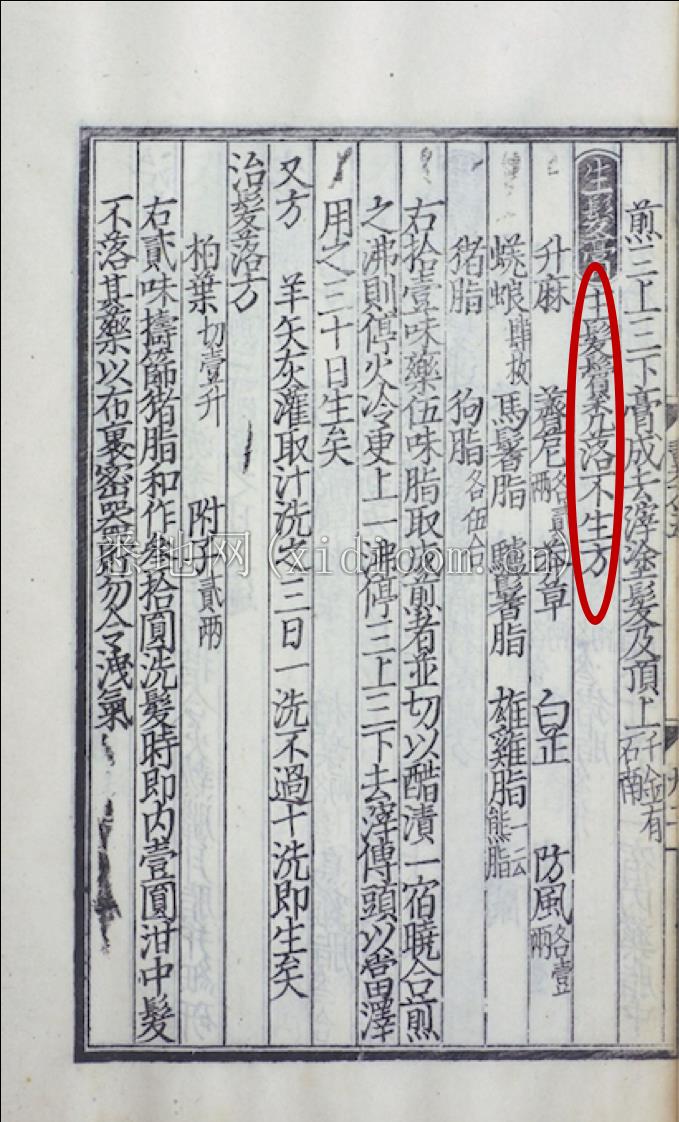 煎三上三下膏成去滓塗髮及頂上千金有石南
生髮膏主髮鬢禿落不生方
升麻　薺苨各貳兩　莽草　白芷　防風各壹兩
蜣蜋肆枚　馬鬐脂　驢鬐脂　雄雞脂一云熊脂
猪脂　狗脂各伍合
右拾壹味藥伍味脂取成煎者並切以醋漬一宿曉合煎
之沸則停火冷更上一沸停三上三下去滓傅頭以當澤
用之三十日生矣
又方　羊矢灰灌取汁洗之三日一洗不過十洗即生矣
治髮落方
柏葉切壹升　附子貳兩
右貳味擣篩猪脂和作叁拾圓洗髮時即内壹圓泔中髮
不落其藥以布裹密器貯勿令洩氣
悉地网(xidi.com.cn)